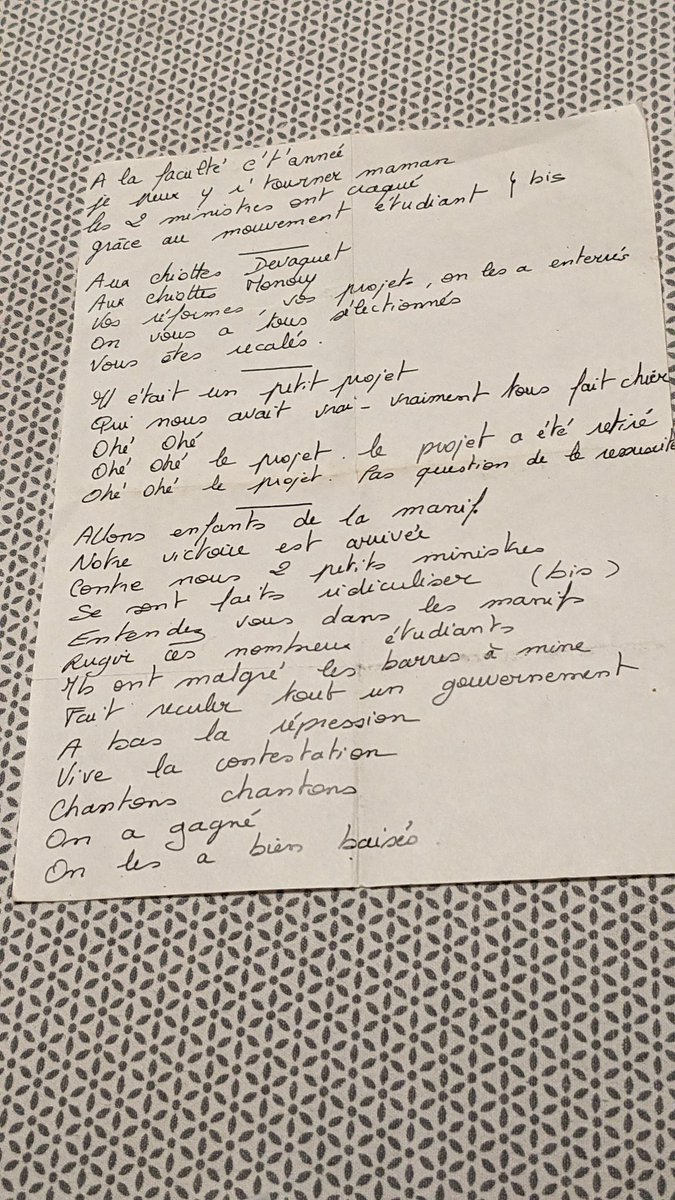 A la faculté c't'année
je peux y r'tourner maman
les 2 ministres ont craqué
grâce au mouvement étudiant } bis
Aux chiottes Devaquet
Aux chiottes Monory
Vos réformes, vos projets, on les a enterrés
On vous a tous sélectionnés
Vous êtes recalés.
Il était un petit projet
Qui nous avait vrai-vraiment tous fait chier
Ohé Ohé
Ohé Ohé le projet. le projet a été retiré
Ohé Ohé le projet. Pas question de le ressuscite
Allons enfants de la manif
Notre victoire est arrivée
Contre nous 2 petits ministres
Se sont faits ridiculiser (bis)
Entendez vous dans les manifs
Rugir ces nombreux étudiants
Ils ont malgré les barres à mine
Fait reculer tout un gouvernement
A bas la répression
Vive la contestation
Chantons chantons
On a gagné
On les a bien baisés.